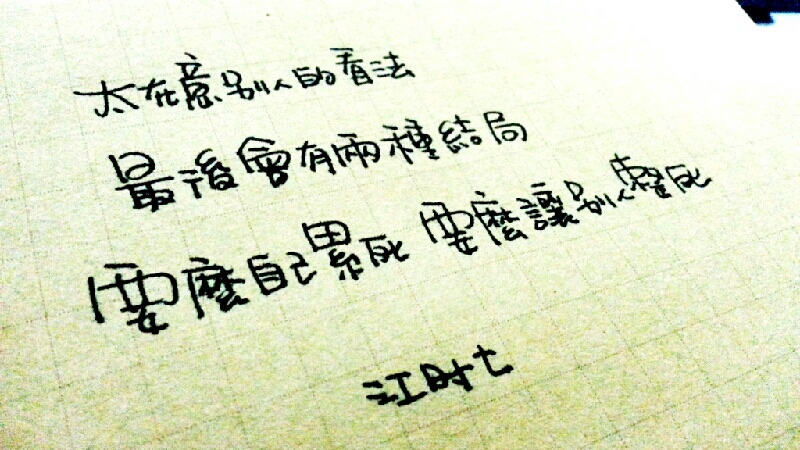 太在意別人的看法
最後會有兩種結局
要麼自己累死 要麼讓別人整死
江时七